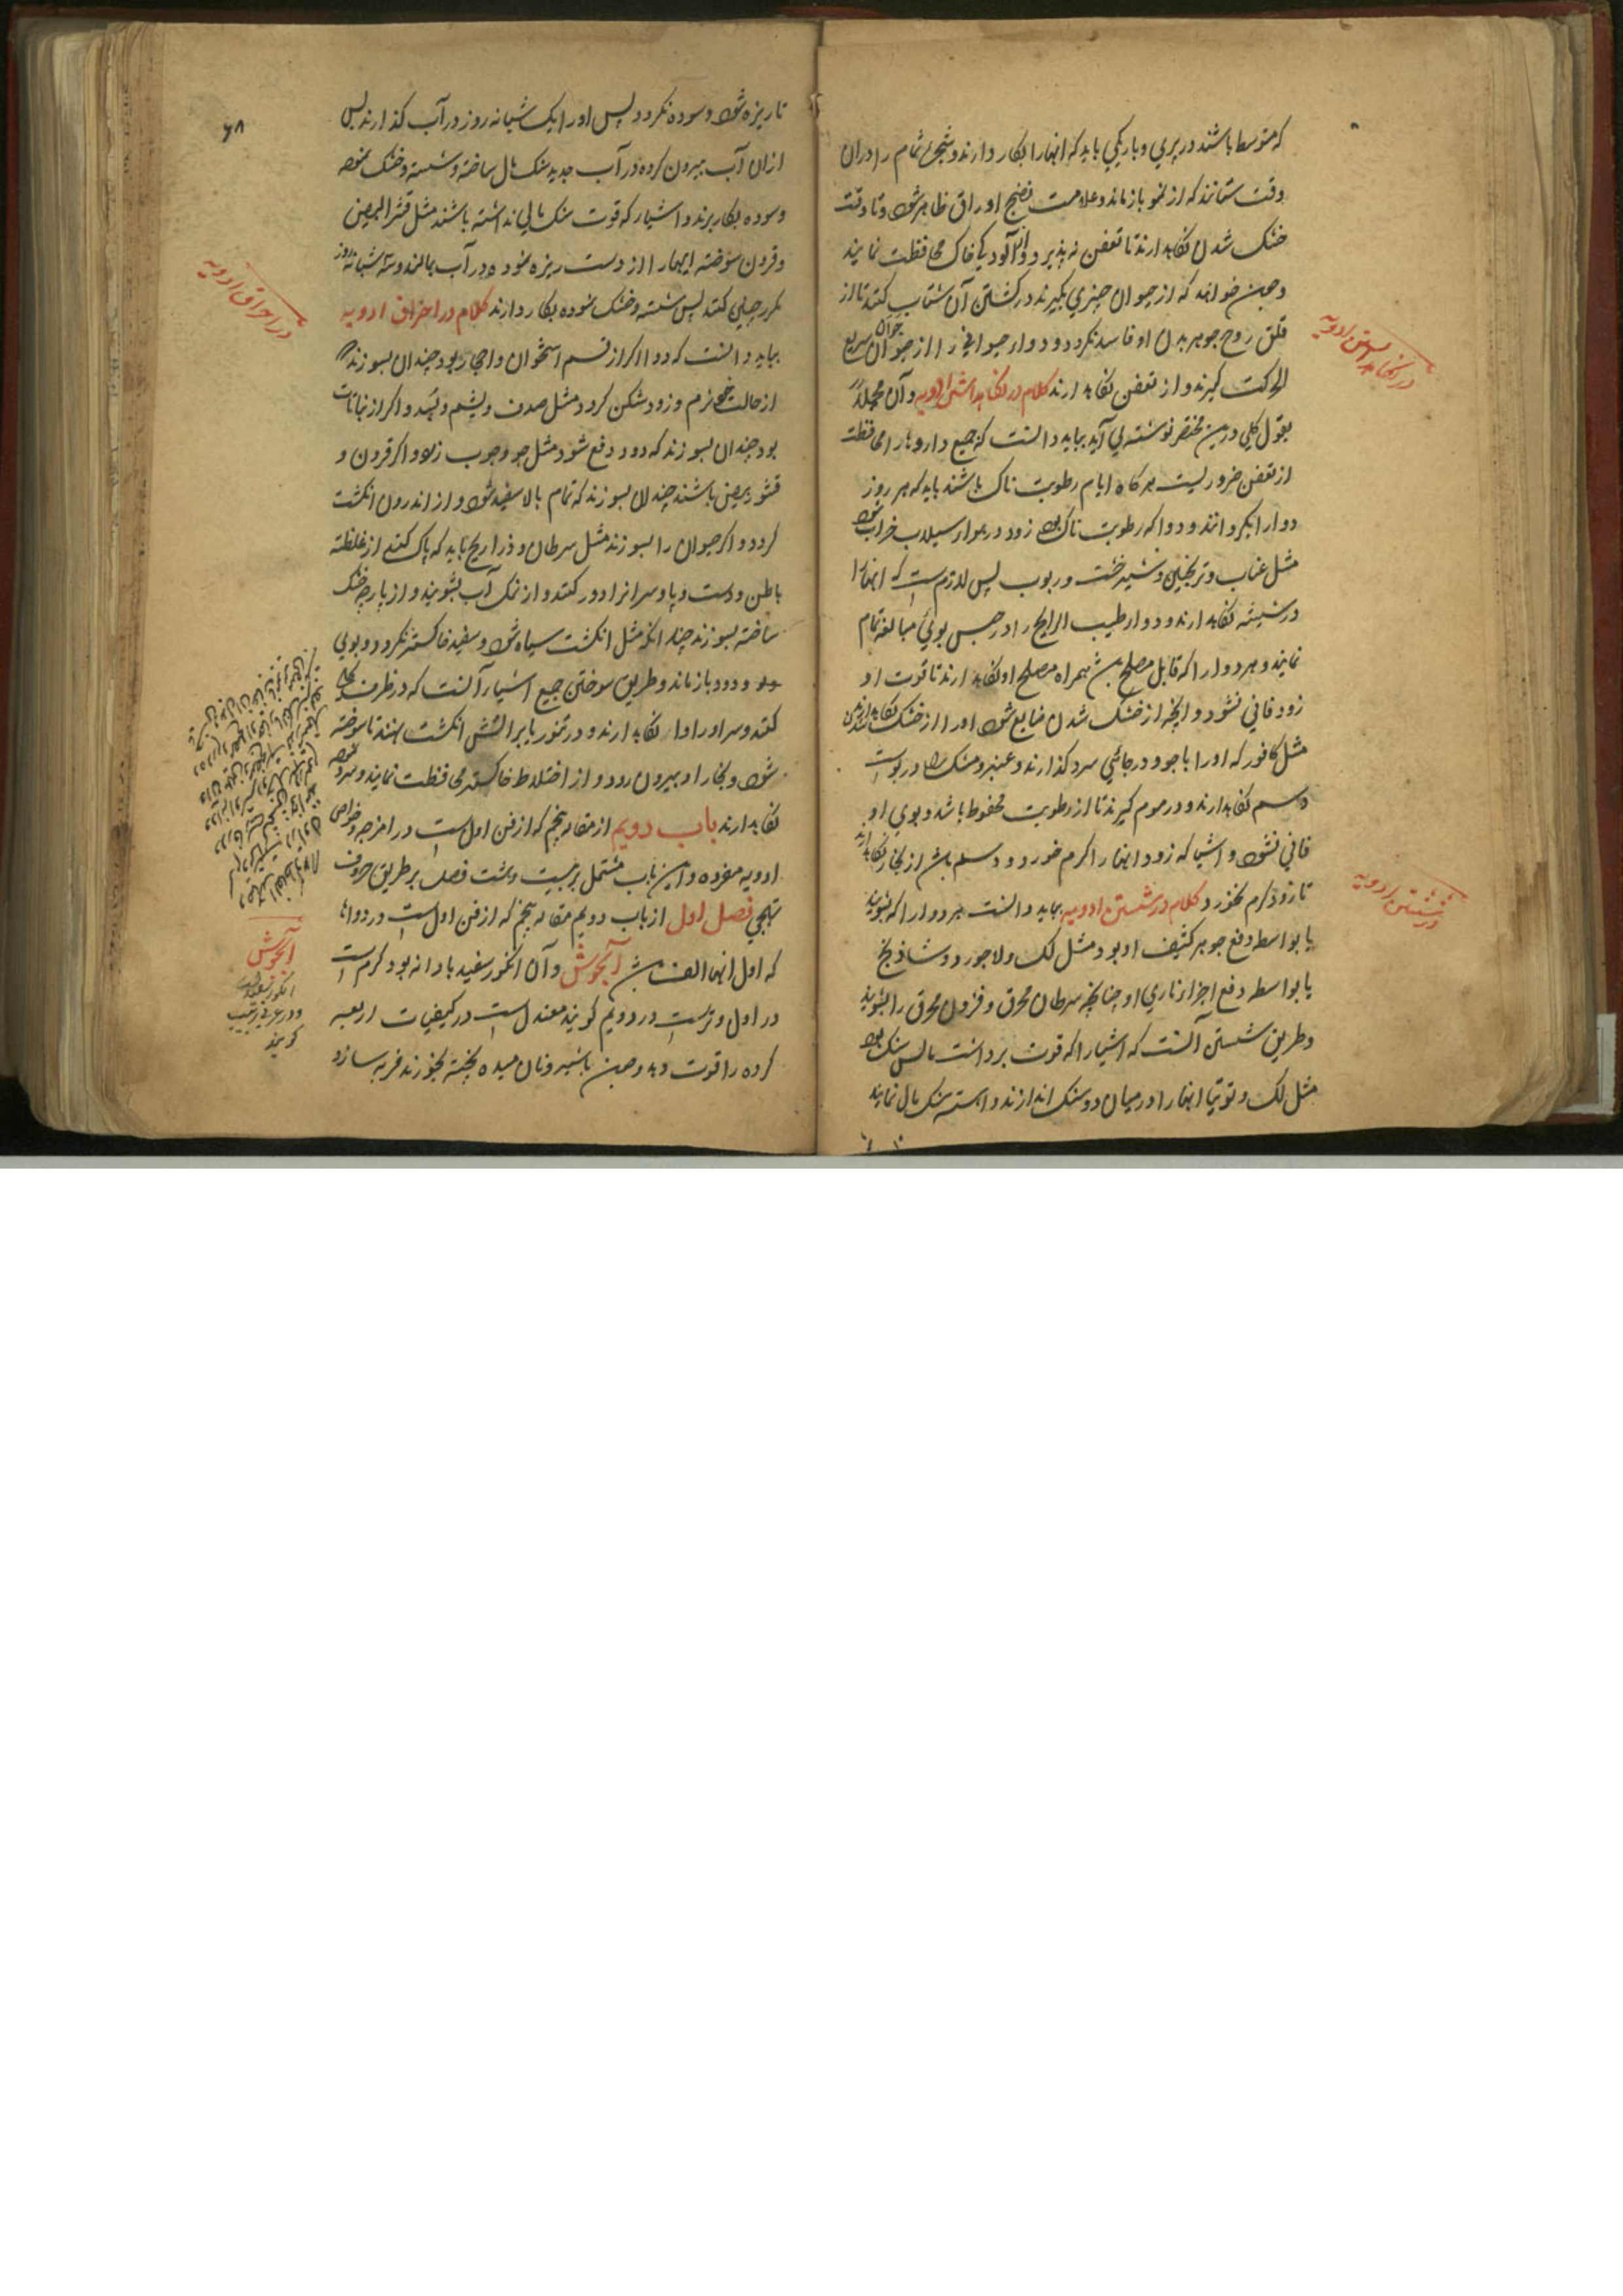 که متوسط باشند در پری و باریکی باید که انهارا بکار دارند و شجری تمام را دران
وقت ستانند که از نمو باز ماند و علامت نضج اوراق ظاهر شود و تا وقت
خشک شدن نکاه دارند تا تعفن نه پذیرد و از آلودکی خاک محافظت نمایند
و همن خواهد که از حیوان چیزی بکیرند در کشتن آن شتاب کنند تا از
قلق روح جوهر بدن او فاسد نکردد و دواء حیوانی را از حیوان جوان سریع
الحرکت کیرند و از تعفن نکاه دارند کلام در نکاهداشتن ادویه و آن مجملا
بقول کلی درین مختصر نوشته می آید بباید دانست که جمیع داروها را محافظت
از تعفن ضروریست هر کاه ایام رطوبت ناک باشند باید که هر روز
دوا را بکردانند و دوا که رطوبت ناک بود زود در هوا و سیلاب خراب شود
مثل عناب و ترنجبین و شیرخشت و ربوب پس لازم است که انها را
در شیشه نکاه دارند و دواء طیب الرایح را در حبس بوئی مبالغه تمام
نمایند و هر دوا را که قابل مصلح باشد همراه مصلح او نکاه دارند تا قوت او
زود فانی نشود و انچه از خشک شدن ضایع شود اورا از خشک شدن نکاه دارند
مثل کافور که اورا با جو و در جائی سرد کذارند و عنبر و مشک را در پوست
و سم نکاه دارند و در موم کیرند تا از رطوبت محفوظ باشد و بوی او
فانی نشود و اشیا که زود انهارا کرم خورد و دسم باشد از بخار نکاه دارند
تا زود کرم نخورد کلام در شستن ادویه بباید دانست هر دوا را که بشویند
یا بواسطه دفع جوهر کثیف او بود مثل لک و لاجورد و شاذنج
یا بواسطه دفع اجزاء ناری او چنانچه سرطان محرق و قرون محرق را بشویند
و طریق شستن آنست که اشیا را که قوت برداشت مالش سنک بود
مثل لک و توتیا انهارا در میان دو سنک اندازند و اهسته سنک مال نمایند
در نکاهداشتن ادویه
در شستن ادویه
۶۸
تا ریزه شود و سوده نکردد پس اورا یک شبانه روز در آب کذارند پس
ازان آب بیرون کرده در آب جدید سنک مال ساخته و شسته و خشک نموده
و سوده بکار برند و اشیا که قوت سنک مالی نداشته باشند مثل قشر البیض
و قرون سوخته اینها را از دست ریزه نموده در آب بمالند و سه شبانه روز
مکرر چنین کنند پس شسته و خشک نموده بکار دارند کلام در احراق ادویه
بباید دانست که دوا اکر از قسم استخوان و احجار بود چندان بسوزند
از حالت خود نرم و زود شکن کردد مثل صدف و یشم و بسد و اکر از نباتات
بود چندان بسوزند که دود دفع شود مثل جو و جوب زلو و اکر قرون و
قشور بیض باشند چندان بسوزند که تمام بالا سفید شود و از اندرون انکشت
کردد و اکر حیوان را بسوزند مثل سرطان و ذراریح باید که پاک کنند از غلظته
باطن و دست و پا و سر انرا دور کنند و از نمک آب بشویند و از پارچه خشک
ساخته بسوزند چندانکه مثل انکشت سیاه شود و سفید خاکستر نکردد و بوی
و دود باز ماند و طریق سوختن جمیع اشیا آنست که در ظرف کلی
کنند و سر اورا وا نکاه دارند و در تنور یا بر آتش انکشت نهند تا سوخته
شود و بخار او بیرون رود و از اختلاط خاکستر محافظت نمایند و سرد نموده
نکاه دارند باب دویم از مقاله پنجم که از فن اول است در امزجه و خواص
ادویه مفرده و این باب مشتمل بر بیست و هشت فصل بر طریق حروف
تهجی فصل اول از باب دویم مقاله پنجم که از فن اول است در دواها
که اول انها الف باشد آبجوش و آن انکور سفید با دانه بود کرم است
در اول و تر است در دویم کویند معتدل است در کیفیات اربعه
کرده را قوت دهد و همن با شیر و نان میده پخته بخورند فربه سازد
در احراق ادویه
آبجوش
انکور سفید
و در عربی زبیب
کویند